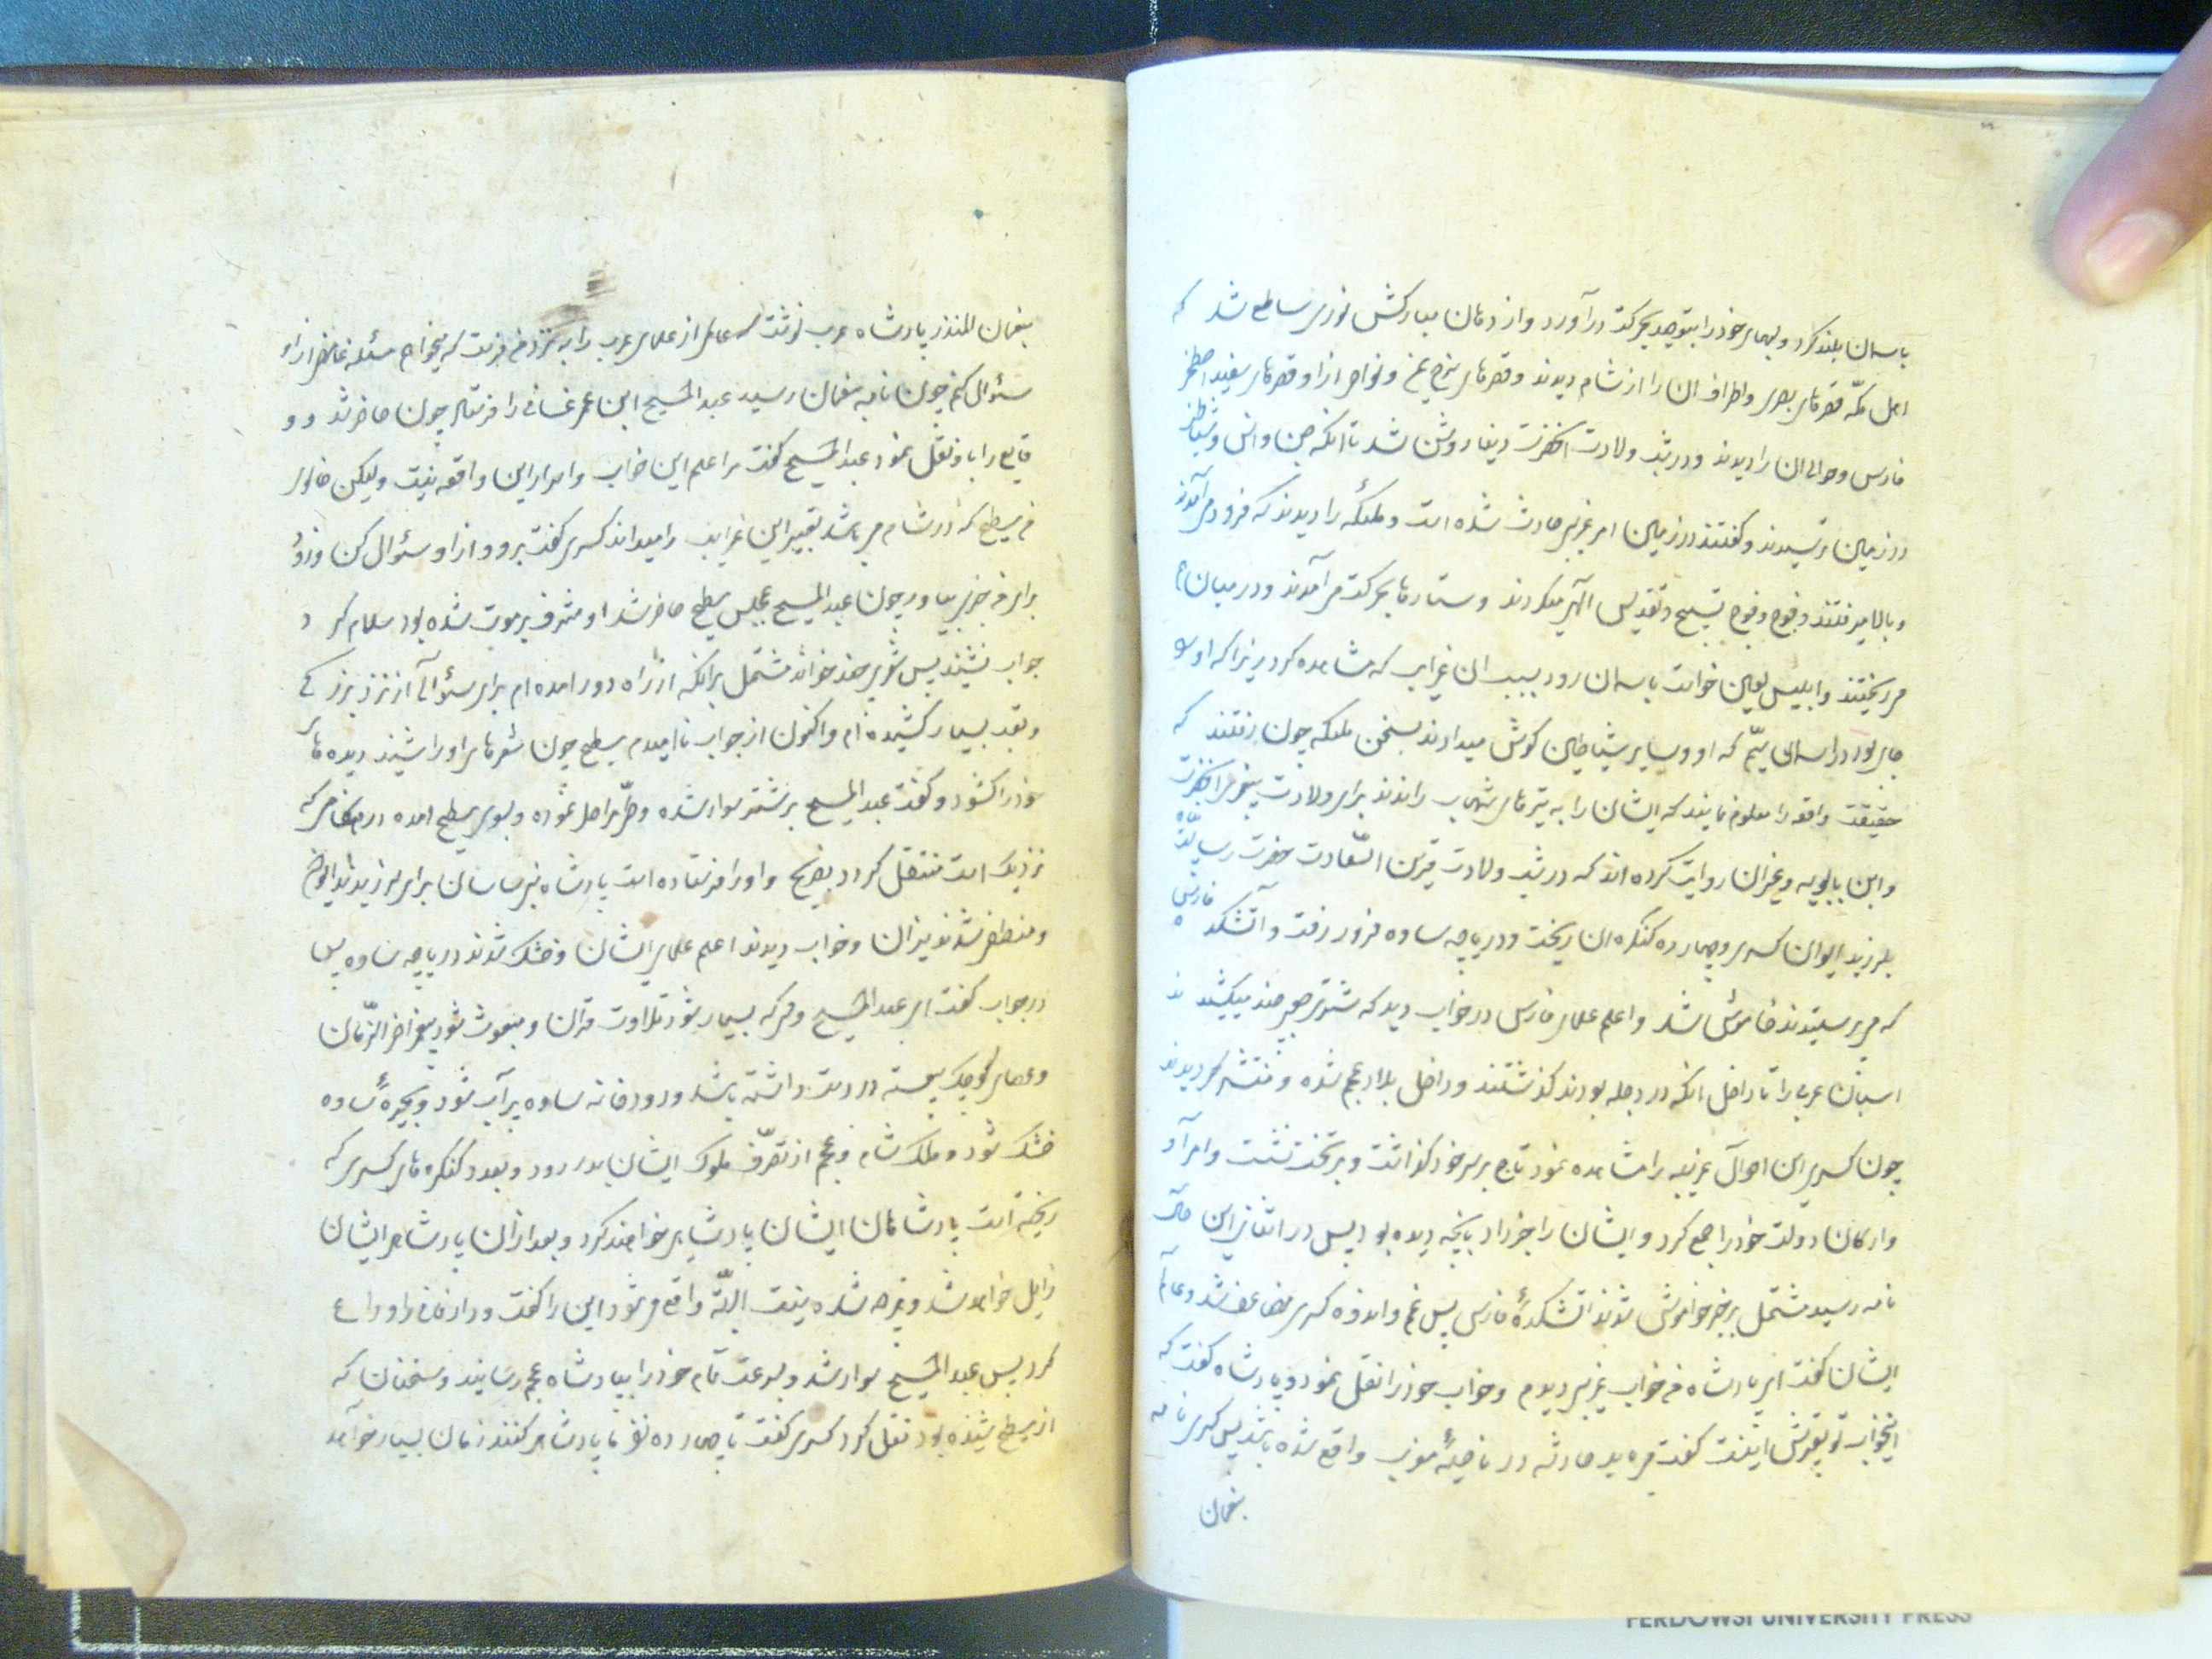 باسمان بلند کرد و لبهای خود را بتوحید بحرکت درآورد و از دهان مبارکش نوری ساطع شد که
اهل مکّه قصرهای بصری و اطراف ان را از شام دیدند و قصرهای سرخ یمن و نواحی انرا و قصرهای سفید اصطخر
فارس و حوالی ان را دیدند و در شب ولادت انحضرت دنیا روشن شد تا انکه جن و انس و شیاطین
در زمین ترسیدند و گفتند در زمین امر غریبی حادث شده است و ملئکه را دیدند که فرود می آمدند
و بالا میرفتند و فوج و فوج تسبیح و تقدیس الهی میکردند و ستارها بحرکت می آمدند و در میان
می ریختند و ابلیس لعین خواست باسمان رود بسبب ان غرایب که مشاهده کرد زیرا که او را
جای بود در اسمان سیّم که او و سایر شیاطین گوش میدادند بسخن ملئکه چون رفتند که
حقیقت واقعه را معلوم نمایند که ایشان را به تیرهای شهاب راندند برای ولادت پیغمبری انحضرت
و ابن بابویه و غیر ان روایت کرده اند که در شب ولادت قرین السّعادت حضرت رسالت پناه
بلرزید ایوان کسری و چهارده کنگره ان ریخت و دریاچه ساوه فرو رفت و آتشکده فارس
که می پرستیدند خاموش شد و اعلم علمای فارس در خواب دید که شتر صعبی چند میکشیدند
اسبان عربی را تا داخل انکه در دجله بودند گذشتند و داخل بلاد عجم شده و منتشر گردیدند
چون کسری این احوال غریبه را مشاهده نمود تاج بر سر خود گذاشت و بر تخت نشست و امرا
و ارکان دولت خود را جمع کرد و ایشان را خبر داد بانچه دیده بود پس در اثنای این حال
نامه رسید مشتمل بر خبر خواموش شدن اتشکدهٔ فارس پس غم و اندوه کسری مضاعف شد و عالم
ایشان گفت ای پادشاه من خواب غریبی دیدم و خواب خود را نقل نمود و پادشاه گفت که
اینخواب تو تعبیرش چیست گفت می باید حادثه در ناحیهٔ مغرب واقع شده باشد پس کسری نامه
بنعمان
بنعمان المنذر پادشاه عرب نوشت که عالمی از علمای عرب را به نزد من فرست که میخواهم مسئله غامضی از او
سئوال کنم چون نامه بنعمان رسید عبد المسیح ابن عمر غسانی را فرستاد چون حاضر شد و و
قایع را باو نقل نمود عبد المسیح گفت مرا علم این خواب و اسرار این واقعه نیست ولیکن خالوی
من سطیح که در شام می باشد تعبیر این غرایب را میداند کسری گفت برو و از او سئوال کن و زود
برای من خبر بیاور چون عبد المسیح بمجلس سطیح حاضر شد او مشرف بر موت شده بود سلام کرد
جواب نشنید پس شعری چند خواند مشتمل بر انکه از راه دور امده ام برای سئوالی از نزد بزرگی
و تعب بسیار کشیده ام و اکنون از جواب ناامیدم سطیح چون شعرهای او را شنید دیده های
خود را گشود و گفت عبد المسیح بر شتر سوار شده و طیّ مراحل نموده و بسوی سطیح امده در هنگامی که
نزدیک است منتقل گردد بضریح و او را فرستاده است پادشاه بنی ساسان برای لرزیدن ایوان
و منطفی شدن نیران و خواب دیدن اعلم علمای ایشان و خشک شدن دریاچه ساوه پس
در جواب گفت ای عبد المسیح وقتی که بسیار شود تلاوت قران و مبعوث شود پیغمبر اخر الزّمان
و عصای کوچک پیوسته در دست داشته باشد و رودخانه ساوه پر آب شود و بحیرهٔ ساوه
خشک شود و ملک شام و عجم از تصرّف ملوک ایشان بدر رود و بعدد کنگره های کسری که
ریخته است پادشاهان ایشان پادشاهی خواهند کرد و بعد از ان پادشاهی ایشان
زایل خواهد شد و هرچه شدنی نیست البتّه واقع می شود این را گفت و دار فانی را وداع
کرد پس عبد المسیح سوار شد و بسرعت تمام خود را بپادشاه عجم رسانید و سخنان که
از سطیح شنیده بود نقل کرد کسری گفت تا چهارده نفر ما پادشاهی کنند زمان بسیار خواهد
FERDOWSI UNIVERSITY PRESS